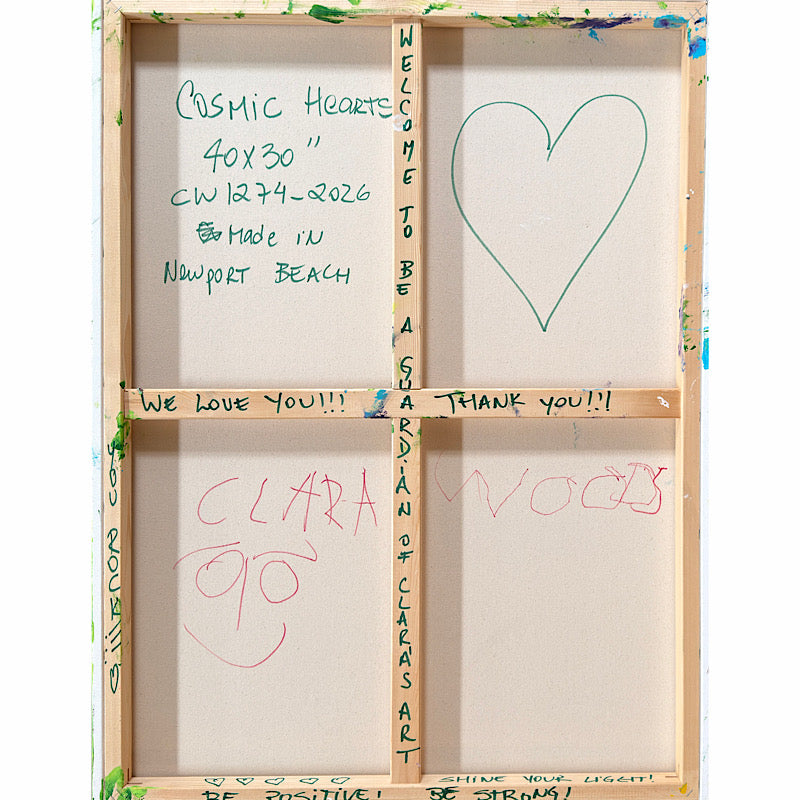 COSMIC HEARTS
40X30"
CW1274-2026
MADE IN
NEWPORT BEACH
WELCOME TO BE A GUARDIAN OF CLARA'S ART
WE LOVE YOU!!! THANK YOU!!!
CLARA WOODS
SHINE YOUR LIGHT!
BE POSITIVE! BE STRONG!